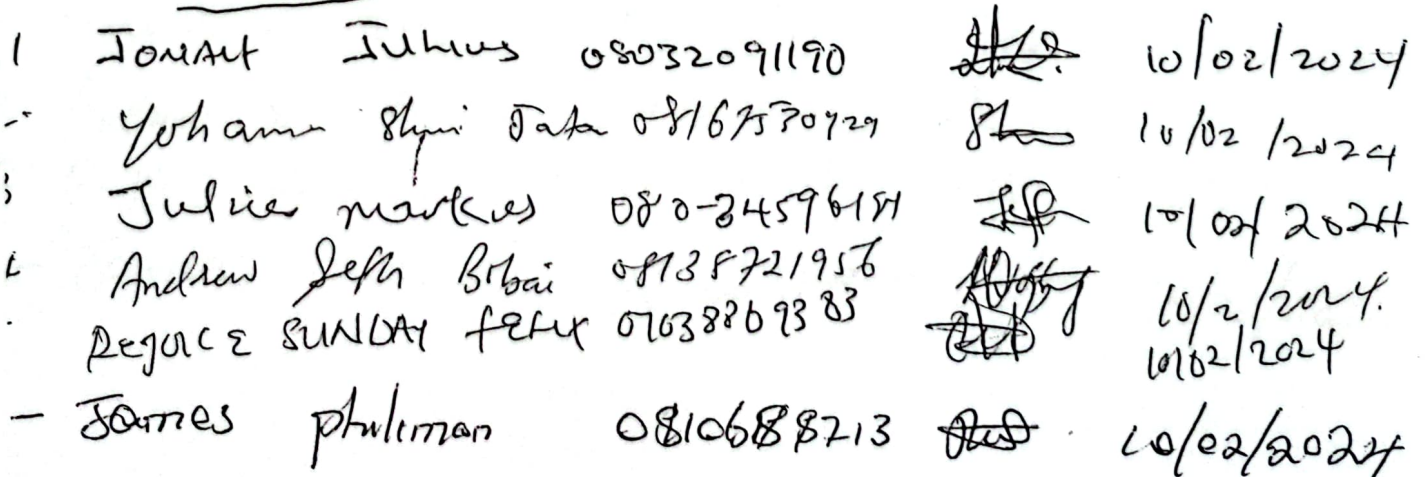 1 JONAH Julius 08032091190 10/02/2024
Yohanna Tata 08167530729 10/02/2024
Julius markus 080-34596181 10/02/2024
Andrew Seth Bobai 08138721956 10/2/2024.
REJOICE SUNDAY FELIX 07038869383 10/02/2024
- James philimon 0810688213 10/02/2024